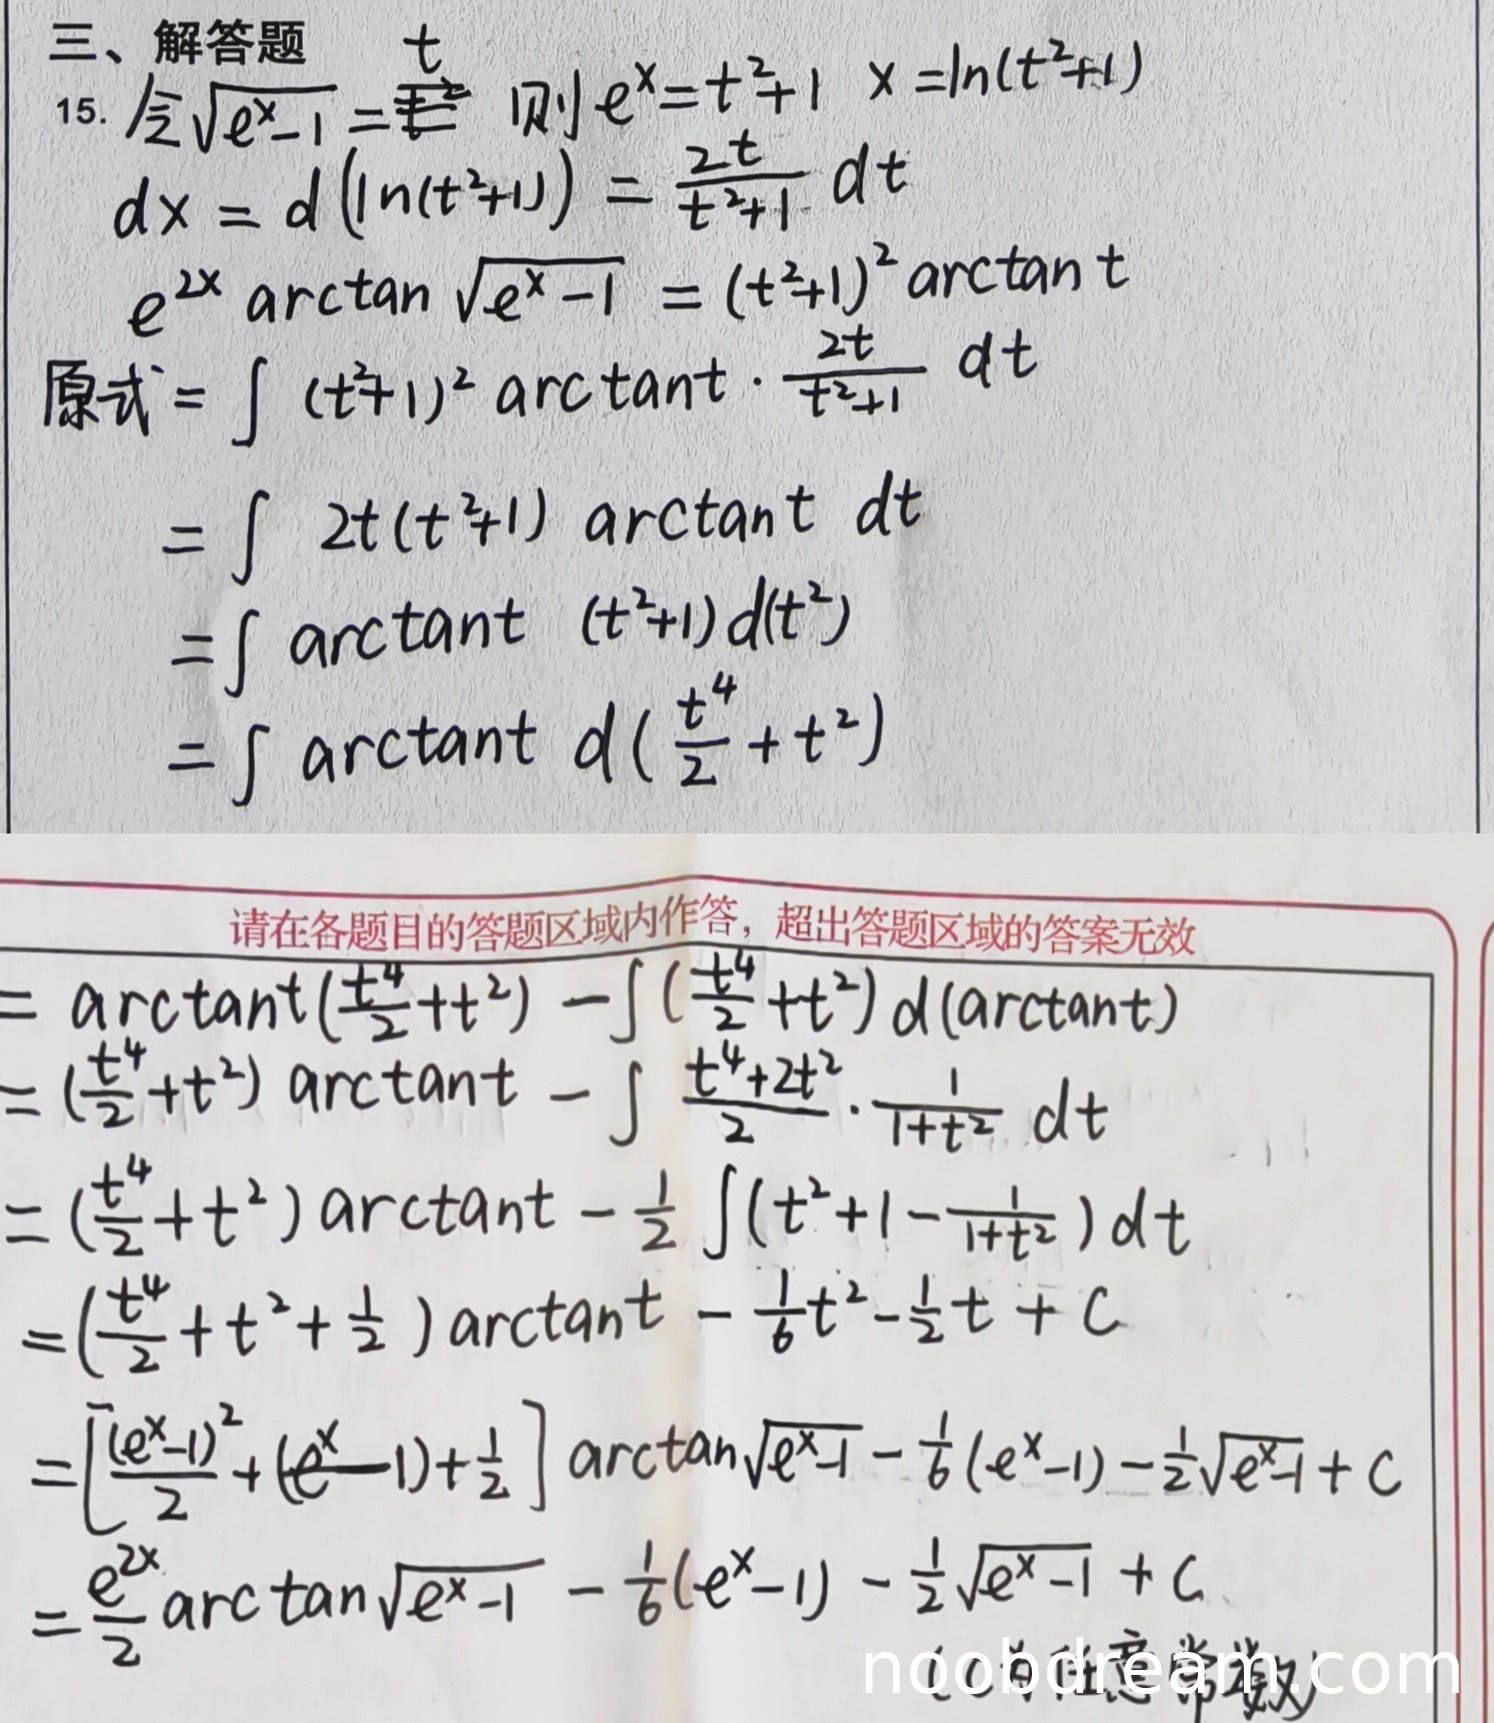 三、解答题
15. 令√(eˣ-1) = t 则 eˣ=t²+1 x=ln(t²+1)
dx = d(ln(t²+1)) = 2t/(t²+1) dt
e²ˣ arctan √(eˣ-1) = (t²+1)² arctan t
原式 = ∫ (t²+1)² arctant · 2t/(t²+1) dt
= ∫ 2t(t²+1) arctant dt
= ∫ arctant (t²+1)d(t²)
= ∫ arctant d(t⁴/2 + t²)
请在各题目的答题区域内作答，超出答题区域的答案无效
= arctant(t⁴/2+t²) - ∫(t⁴/2+t²)d(arctant)
= (t⁴/2+t²) arctant - ∫ (t⁴+2t²)/2 · 1/(1+t²) dt
= (t⁴/2+t²) arctant - 1/2 ∫(t²+1-1/(1+t²))dt
= (t⁴/2+t²+1/2) arctant - 1/6 t² - 1/2 t + C
= [(eˣ-1)²/2+(eˣ-1)+1/2] arctan√(eˣ-1) - 1/6(eˣ-1) - 1/2√(eˣ-1) + C
= e²ˣ/2 arctan√(eˣ-1) - 1/6(eˣ-1) - 1/2√(eˣ-1) + C
(C为任意常数)
noobdream.com